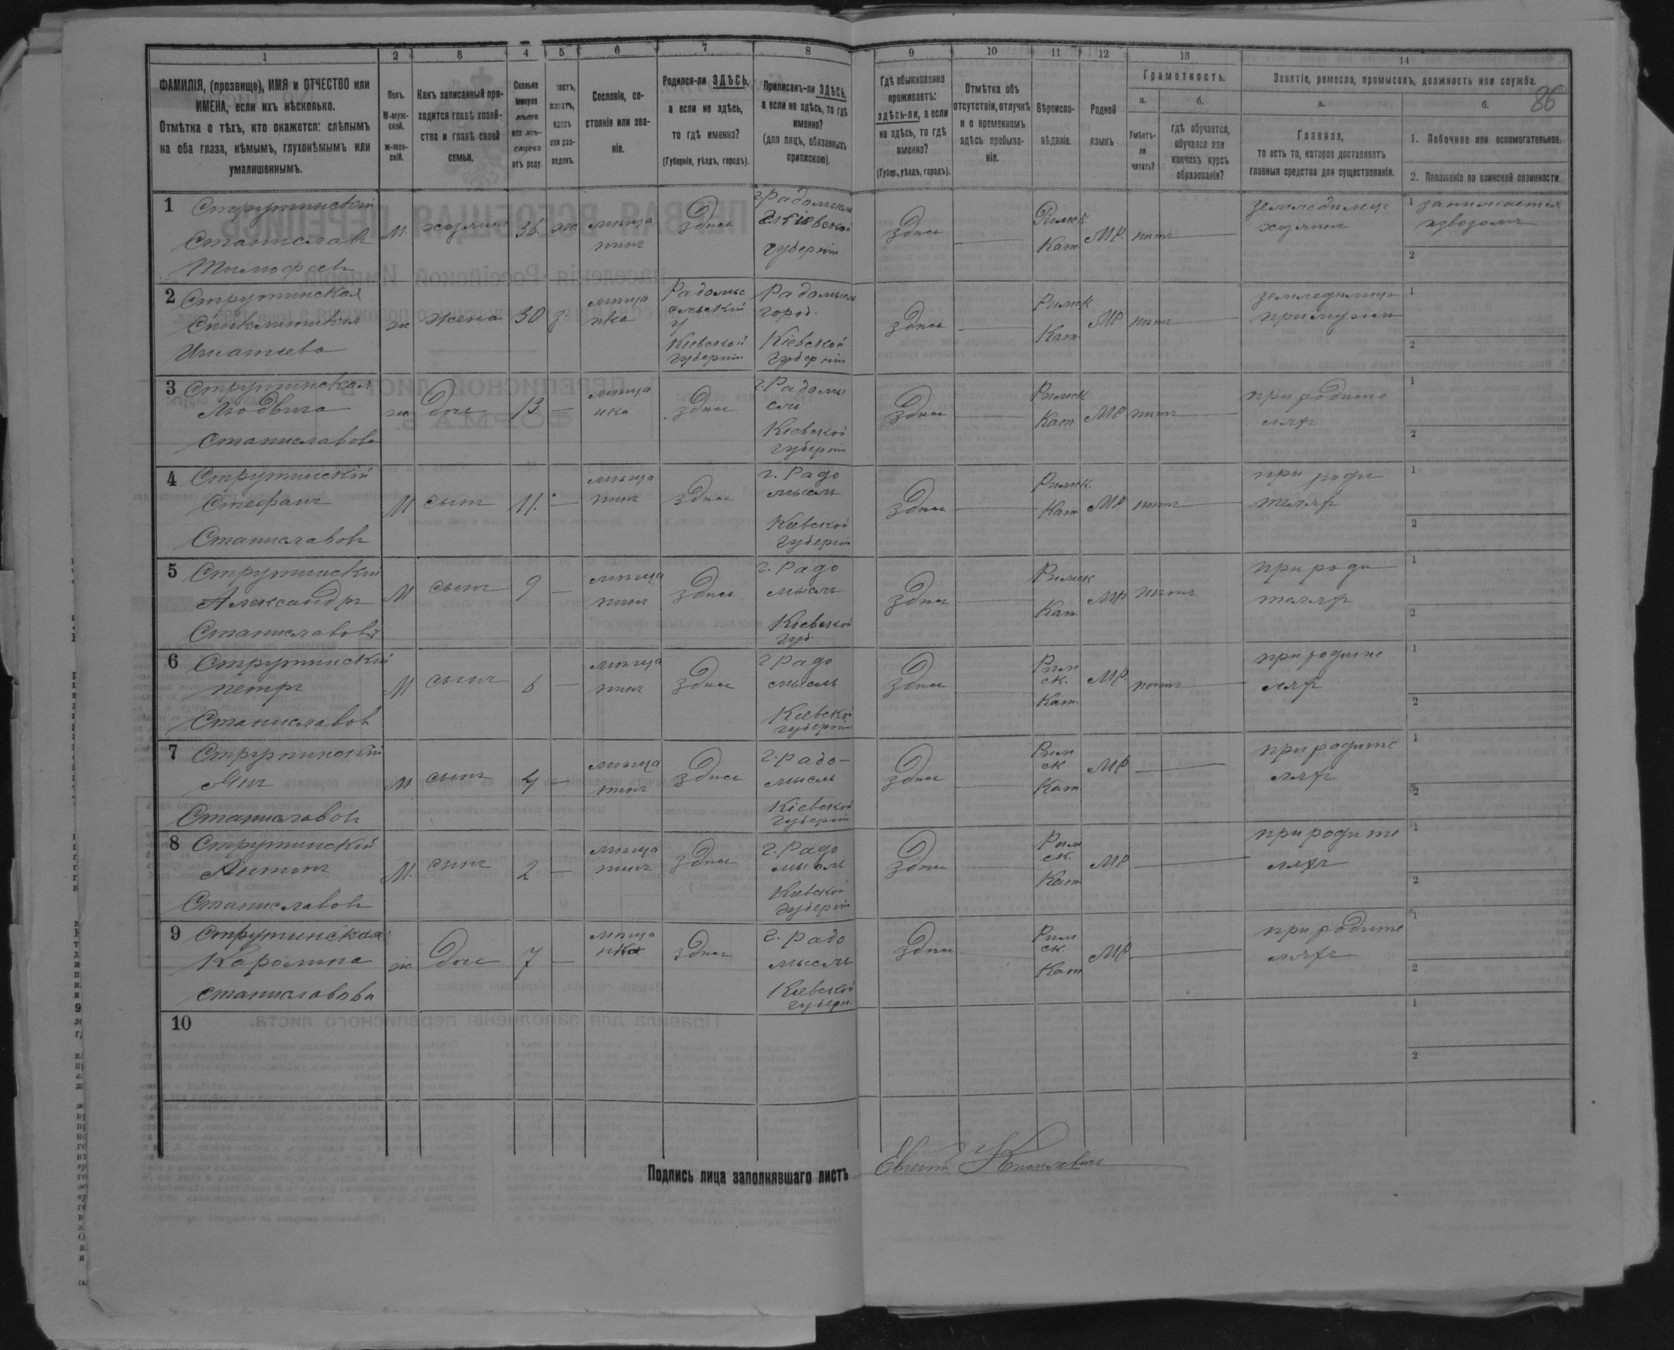 1 2 6 4 5 6 7 8 9 10 11 12 13 14
86
ФАМИЛІЯ, (прозвище), ИМЯ и ОТЧЕСТВО или
ИМЕНА, если ихъ нѣсколько.
Отмѣтка о тѣхъ, кто окажется: слѣпымъ
на оба глаза, нѣмымъ, глухонѣмымъ или
умалишеннымъ.
Полъ.
М-муж-
ской.
ж-жен-
скій.
Какъ записанный при-
ходится главѣ хозяй-
ства и главѣ своей
семьи.
Сколько
минуло
лѣтъ
или мѣ-
сяцевъ
отъ роду.
Сословіе, со-
стояніе или зва-
ніе.
Родился-ли ЗДѢСЬ,
а если не здѣсь,
то гдѣ именно?
(Губернія, уѣздъ, городъ).
Приписанъ-ли ЗДѢСЬ,
а если не здѣсь, то гдѣ
именно?
(для лицъ, обязанныхъ
припискою).
Гдѣ обыкновенно
проживаетъ:
здѣсь-ли, а если
не здѣсь, то гдѣ
именно?
(Губер., уѣздъ, городъ).
Отмѣтка объ
отсутствіи, отлучкѣ
и о временномъ
здѣсь пребыва-
ніи.
Вѣроиспо-
вѣданіе.
Родной
языкъ
Грамотность.
а.
Умѣетъ-
ли
читать?
б.
гдѣ обучается,
обучался или
кончилъ курсъ
образованія?
Занятіе, ремесло, промыселъ, должность или служба.
а.
Главное,
то есть то, которое доставляетъ
главныя средства для существованія.
б.
1. Побочное или вспомогательное.
2. Положеніе по воинской повинности
1 Струтинскій
Станиславъ
Тимофеевъ
М хозяинъ 36 ж мѣща
нинъ
здѣсь
г Радомысль
Кіевской
губерніи
здѣсь
Римск
Кат МР нѣтъ
земледѣлецъ
хозяинъ
1 занимается
извозомъ
2
2 Струтинская
Игнатіева
ж жена 30 з. мѣща
нка
Радомыс
льскій
у
Кіевской
губерніи
Радомысл
город.
Кіевской
губерніи
здѣсь
Римск
Кат МР нѣтъ
при мужѣ
1
2
3 Струтинская
Людвига
Станиславова
ж дочь 13 — мѣща
нка
здѣсь
г. Радомы
сль
Кіевской
губерніи
здѣсь
Римск
Кат МР нѣтъ
при родите
ляхъ
1
2
4 Струтинскій
Стефанъ
Станиславовъ
М сынъ 11. — мѣща
нинъ
здѣсь
г. Радо
мысль
Кіевской
губерніи
здѣсь
Римск
Кат МР нѣтъ
при роди
теляхъ
1
2
5 Струтинскій
Александръ
Станиславовъ
М сынъ 9 — мѣща
нинъ
здѣсь
г. Радо
мысль
Кіевской
губ
здѣсь
Римск
Кат МР нѣтъ
при роди
теляхъ
1
2
6 Струтинскій
Петръ
Станиславовъ
М сынъ 6 — мѣща
нинъ
здѣсь
г Радо
мысль
Кіевской
губерніи
здѣсь
Рим
ск.
Кат МР нѣтъ
при родите
ляхъ
1
2
7 Струтинскій
Янъ
Станиславовъ
М сынъ 4 — мѣща
нинъ
здѣсь
г. Радо-
мысль
Кіевской
губерніи
здѣсь
Рим
ск
Кат МР
при родите
ляхъ
1
2
8 Струтинскій
Антонъ
Станиславовъ
М. сынъ 2 — мѣща
нинъ
здѣсь
г. Радо
мысль
Кіевской
губерніи
здѣсь
Рим
ск.
Кат МР
при родите
ляхъ
1
2
9 Струтинская
Каролина
Станиславова
ж дочь 7 — мѣща
нка
здѣсь
г. Радо
мысль
Кіевской
губерн.
здѣсь
Рим
ск.
Кат МР
при родите
ляхъ
1
2
10
1
2
Подпись лица заполнявшаго листъ